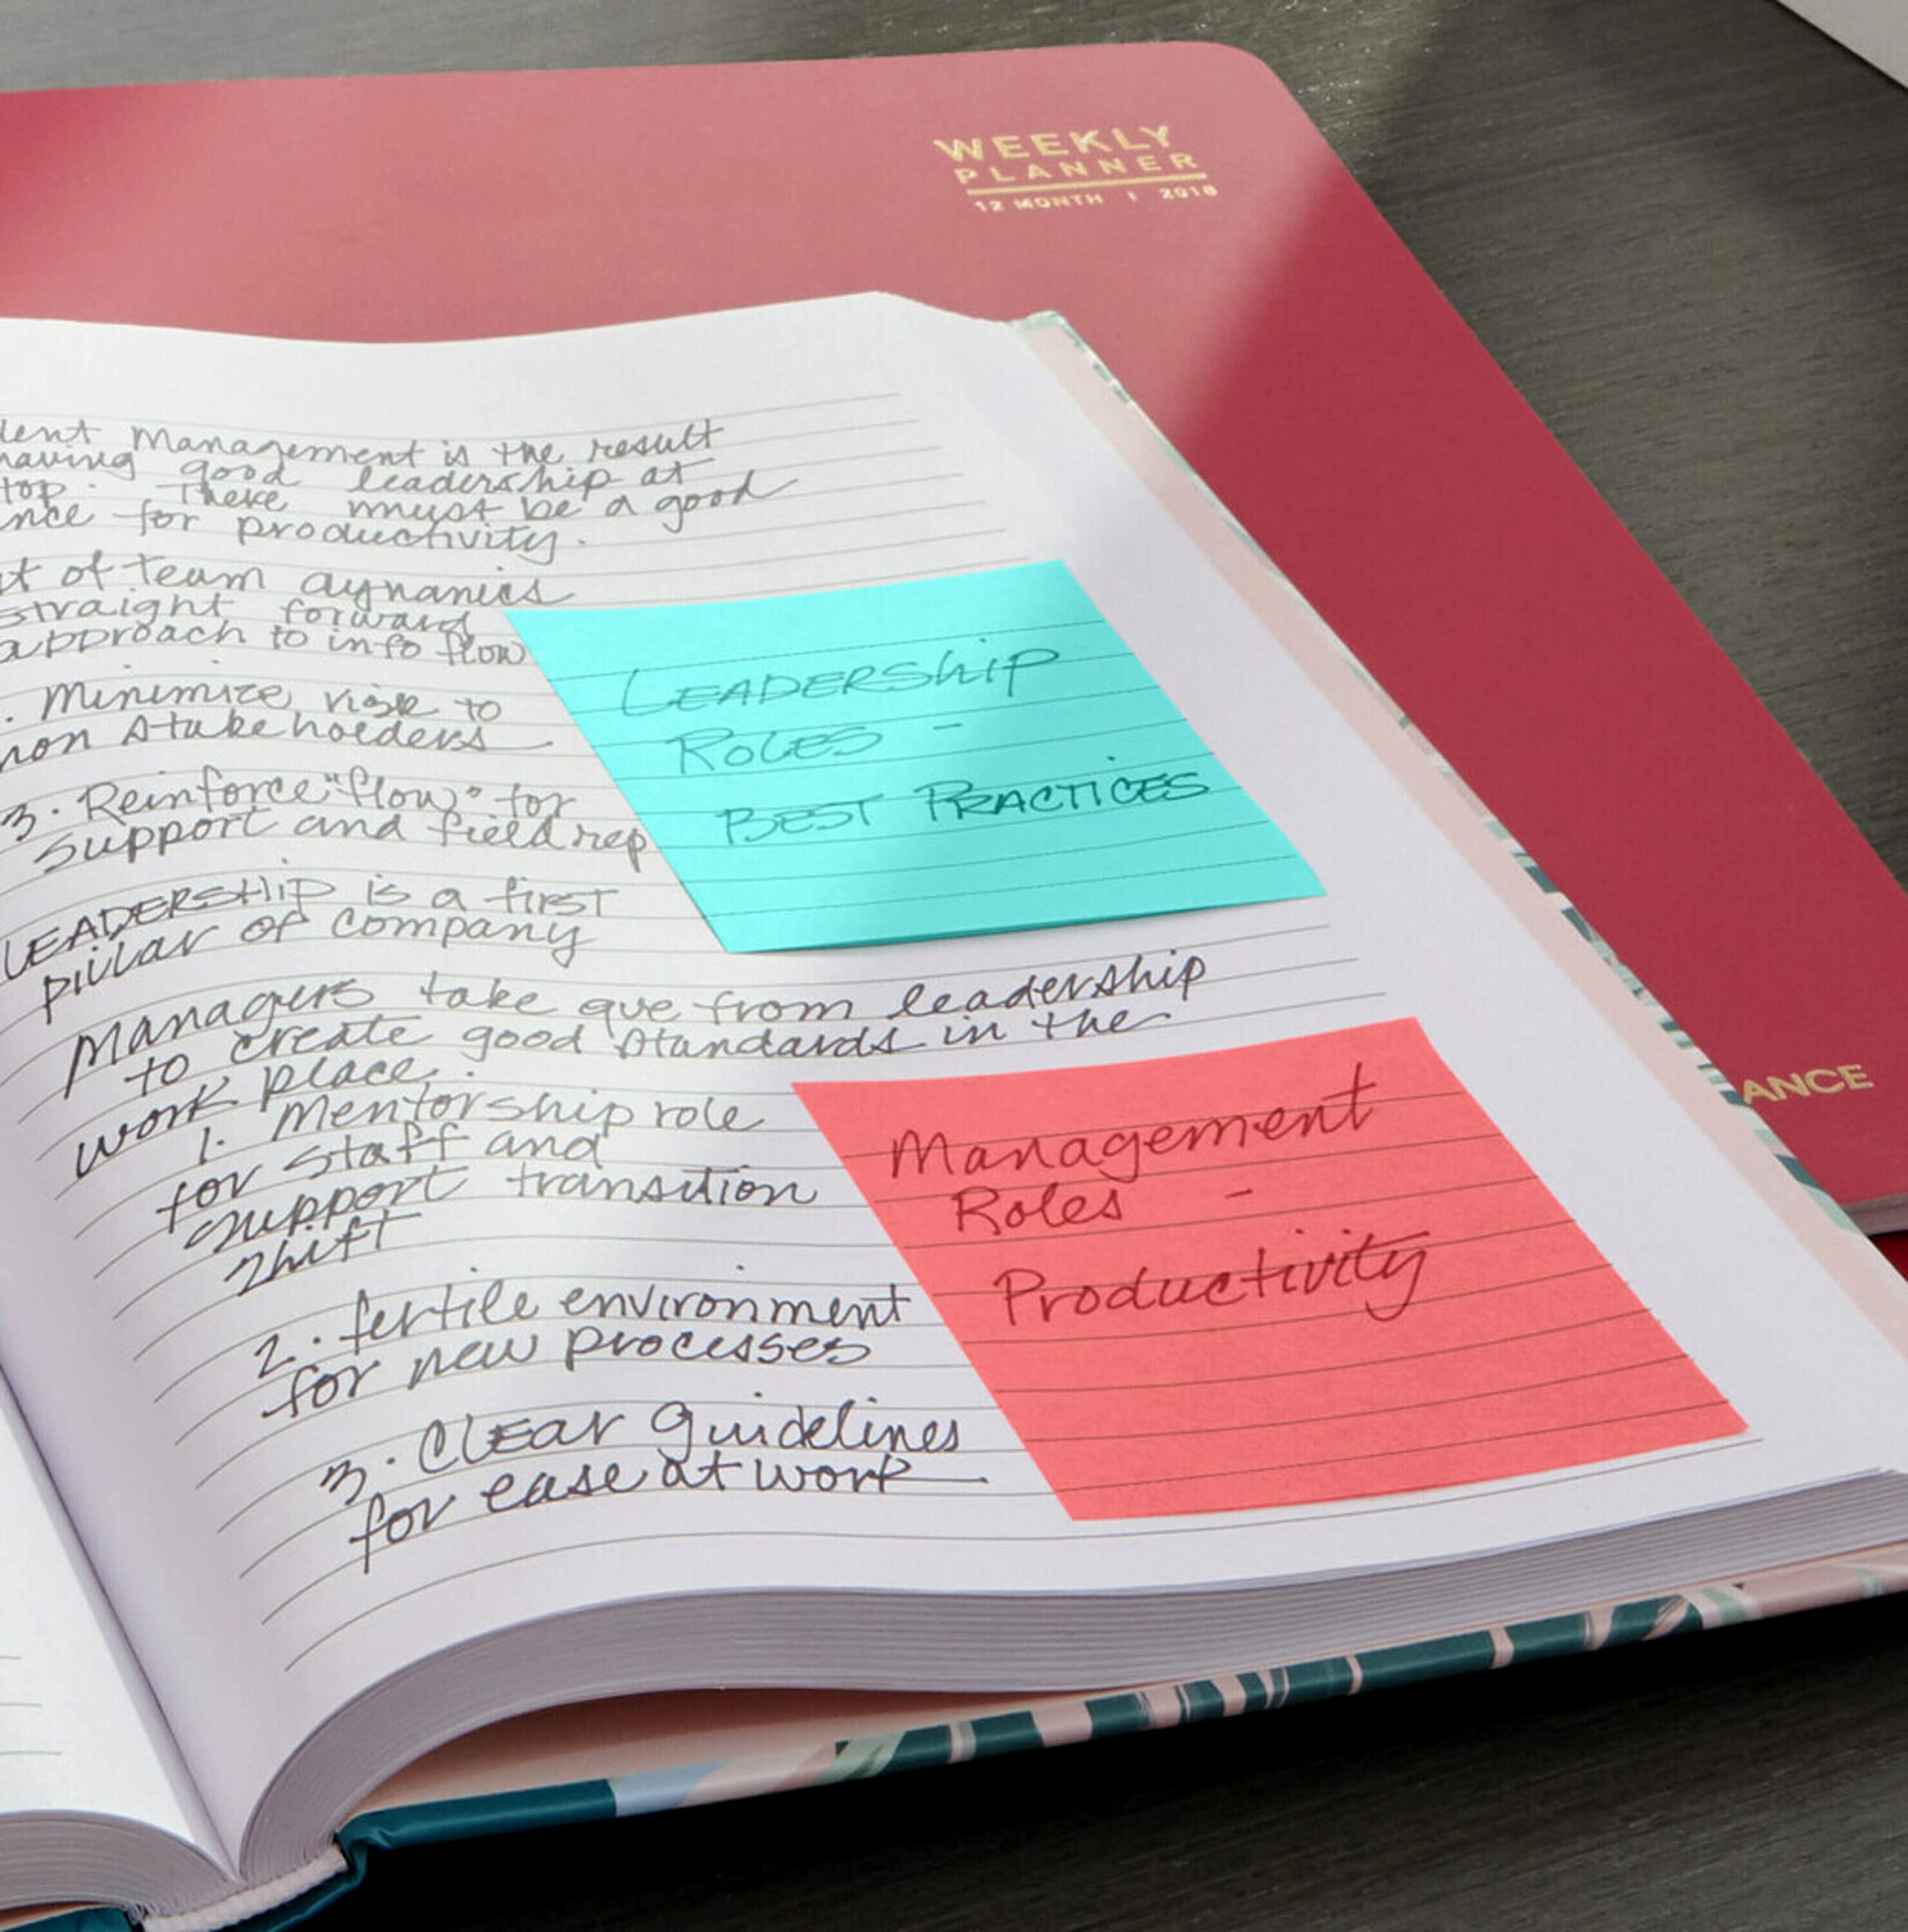 WEEKLY
PLANNER
12 MONTH | 2018
lent Management is the result
having good leadership at
top. There must be a good
nce for productivity.
t of team aynanics
straight forward
approach to info flow
. Minimize risk to
non stakeholders
3. Reinforce "flow" for
support and field rep
LEADERSHIP is a first
pillar of company
Managers take que from leadership
to create good standards in the
work place.
1. Mentorship role
for staff and
support transition
shift
2. fertile environment
for new processes
3. Clear guidelines
for ease at work
LEADERShip
ROLES -
BEST PRACTICES
Management
Roles -
Productivity
ANCE